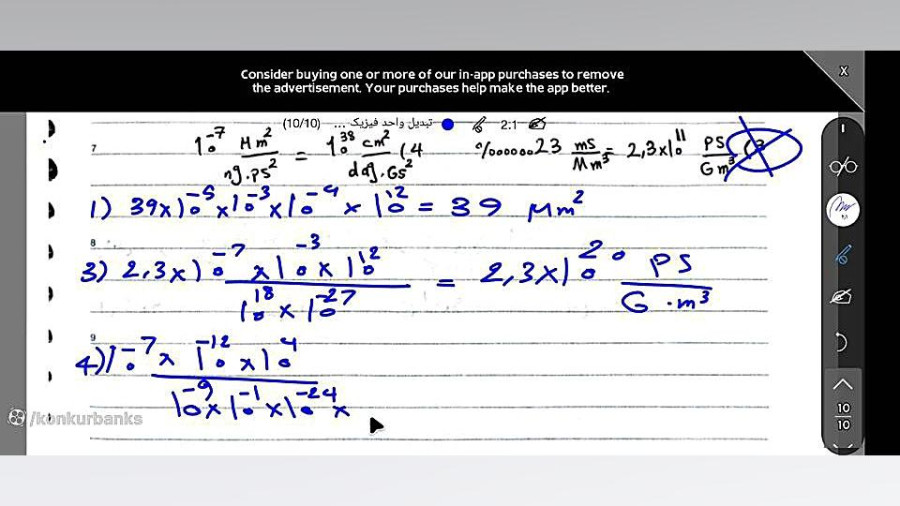 Consider buying one or more of our in-app purchases to remove
the advertisement. Your purchases help make the app better.
X
(10/10) ... تبدیل واحد فیزیک 2:1
7
10^-7 Mm^2 / ng.Ps^2 = 10^38 cm^2 / dag.Gs^2 (4
%000000 23 ms / Mm^3 = 2,3x10^11 PS / Gm^3 (3
1) 39x10^-5 x10^-3 x10^-4 x 10^12 = 39 μm^2
8
3) 2,3x10^-7 x10^-3 x 10^12 / 10^18 x 10^-27 = 2,3x10^20 PS / G.m^3
9
4) 10^-7 x 10^-12 x10^4 / 10^-9 x10^-1 x10^-24 x
/konkurbanks
10
10